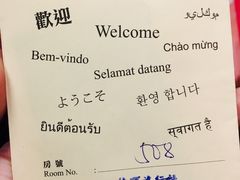 歡迎
Welcome
Bem-vindo
Chào mừng
Selamat datang
ようこそ
환영 합니다
ยินดีต้อนรับ
स्वागत है
房 號
Room No. : 508